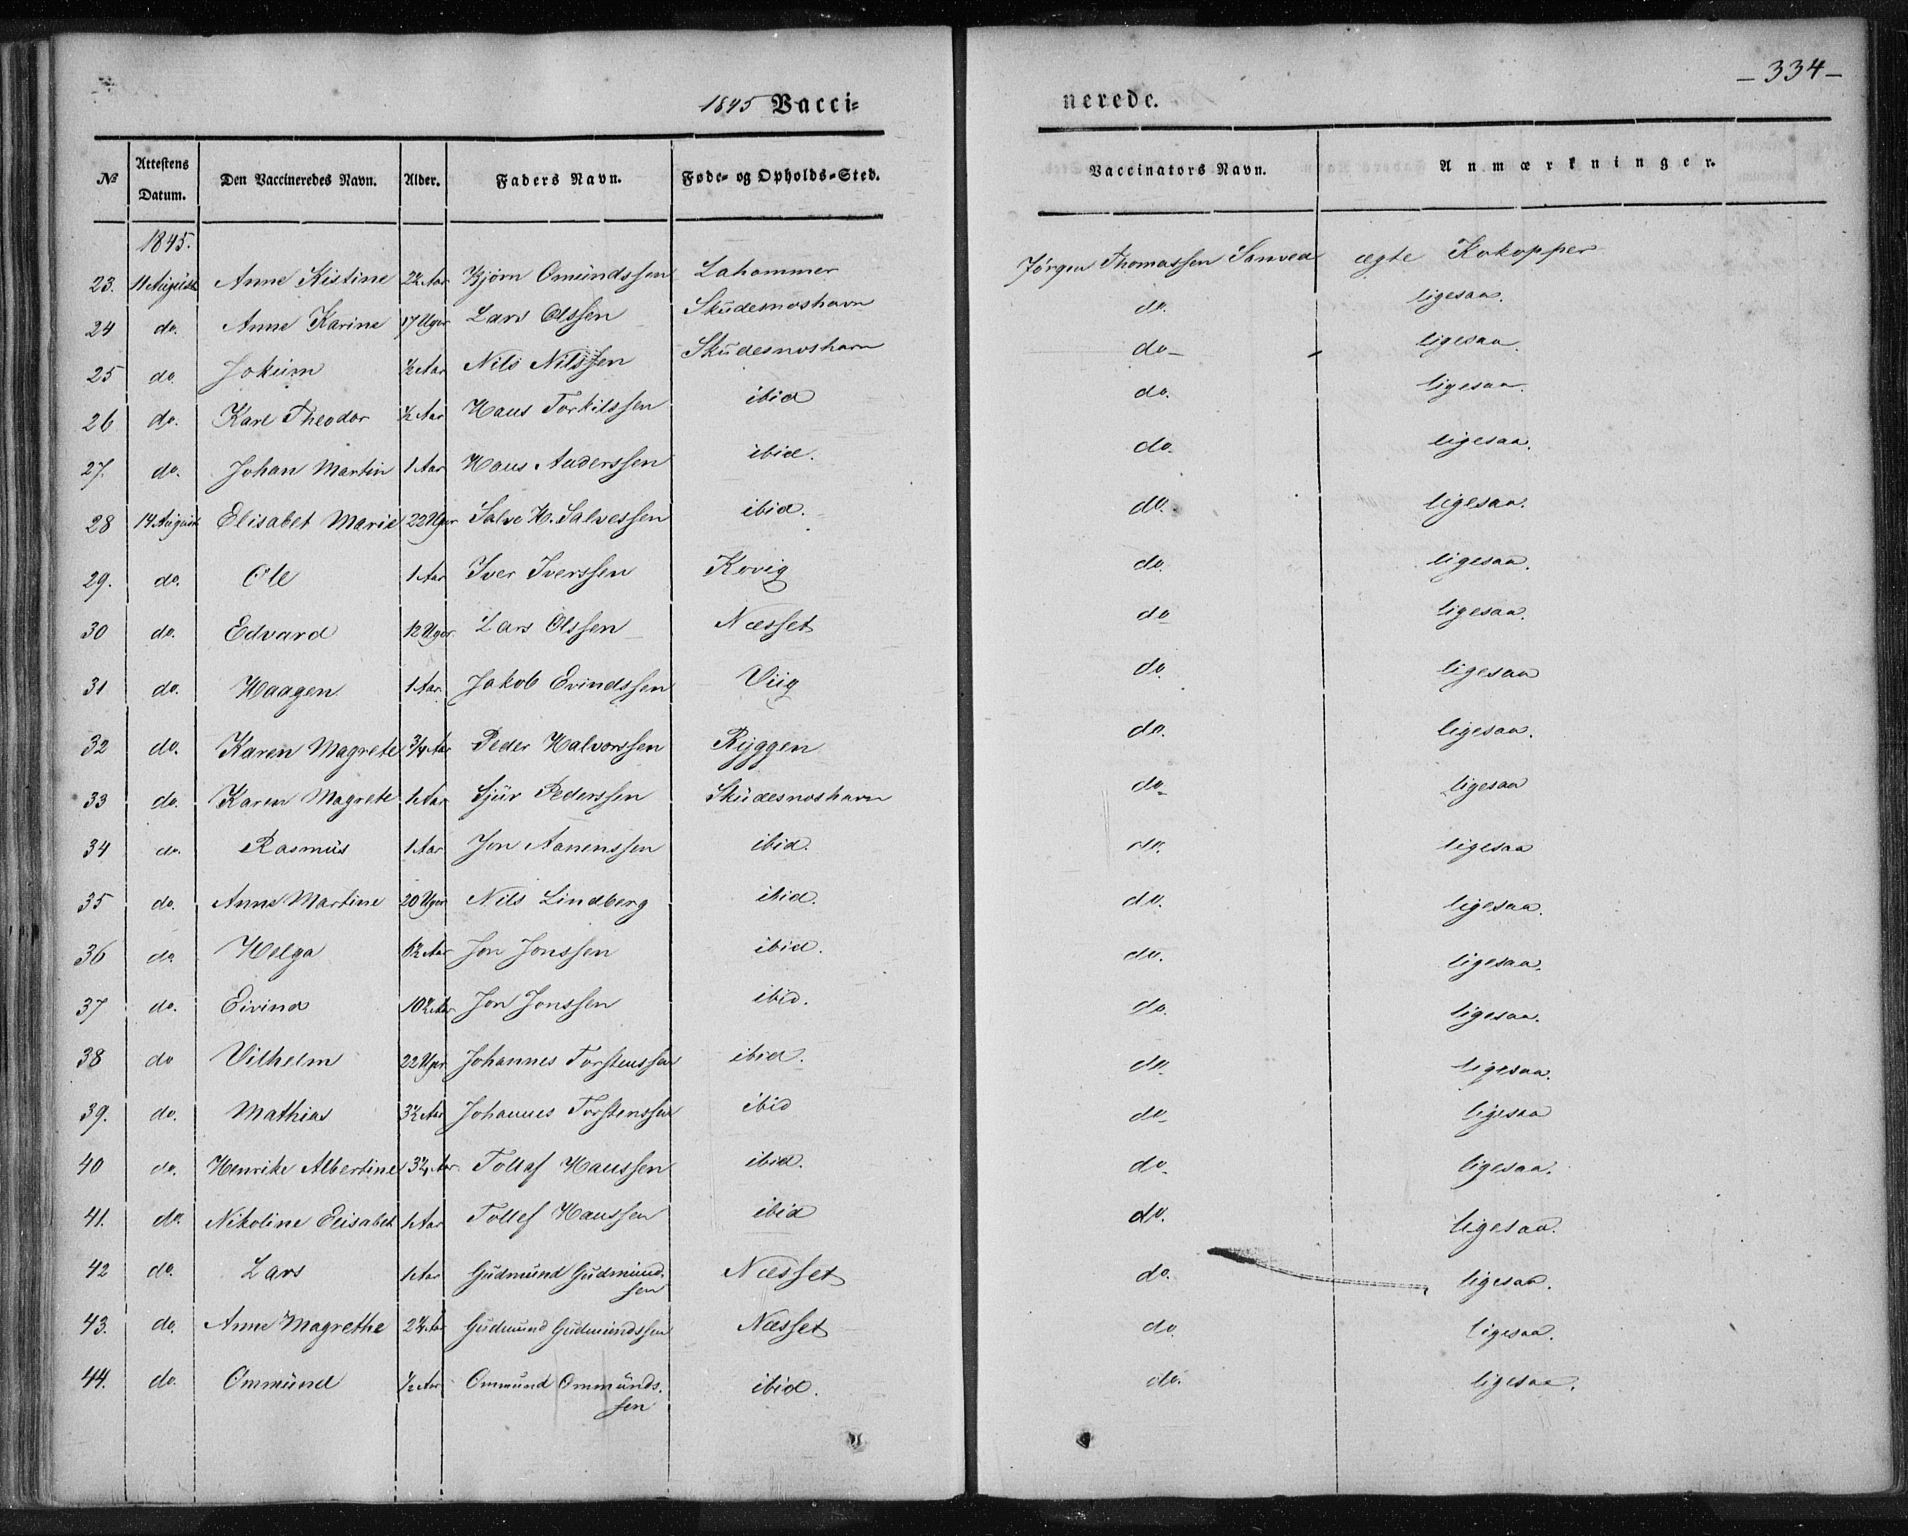 – 334 –
1845 Vacci=
nerede.
No Attestens Datum. Den Vaccineredes Navn. Alder. Faders Navn. Føde- og Opholds-Sted. Vaccinators Navn. Anmærkninger.
1845.
23. 11 August Anne Kistine 2½ Aar Bjørn Omundssen Lahammer Jørgen Thomassen Sanved ægte Kokopper
24 do. Anne Karine 17 Uger Lars Olssen Skudesnoshavn do. ligesaa.
25 do. Jokum ½ Aar Nils Nilssen Skudesnoshavn do – ligesaa.
26 do. Karl Theodor ½ Aar Hans Torkilssen ibid do. ligesaa.
27. do. Johan Martin 1 Aar Hans Anderssen ibid. do. ligesaa.
28 14 August Elisabet Marie 22 Uger Salve H. Salvessen ibid. do. ligesaa.
29. do. Ole 1 Aar Iver Iverssen Kovig do. ligesaa.
30 do. Edvard 12 Uger Lars Olssen Næsset do ligesaa.
31 do. Haagen 1 Aar. Jakob Evindssen Viig do. ligesaa
32 do. Karen Magrete ¾ Aar Peder Halvorssen Ryggen do. ligesaa.
33 do. Karen Magrete 1 Aar Sjur Pederssen Skudesnoshavn do. ligesaa
34 do. Rasmus 1 Aar Jon Aanenssen ibid. do. ligesaa
35 do. Anne Martine 20 Uger Nils Lindberg ibid. do. ligesaa.
36 do. Helga Aar Jon Jonssen ibid. do. ligesaa.
37 do. Eivind 10½ Aar Jon Jonssen ibid. do. ligesaa.
38 do Vilhelm 22 Uger Johannes Torstenssen ibid. do. ligesaa.
39. do. Mathias 3½ Aar Johannes Torstenssen ibid do. ligesaa
40 do. Henrike Albertine Aar Tollef Hanssen ibid. do. ligesaa.
41. do. Nikoline Elisabet 1 Aar Tollef Hanssen ibid do. ligesaa.
42 do. Lars 1 Aar Gudmund Gudmund-
ssen Næsset do. ligesaa.
43. do. Anne Magrethe Aar Gudmund Gudmundssen Næsset do. ligesaa.
44. do. Ommund ½ Aar Ommund Ommunds-
sen ibid. do. ligesaa.